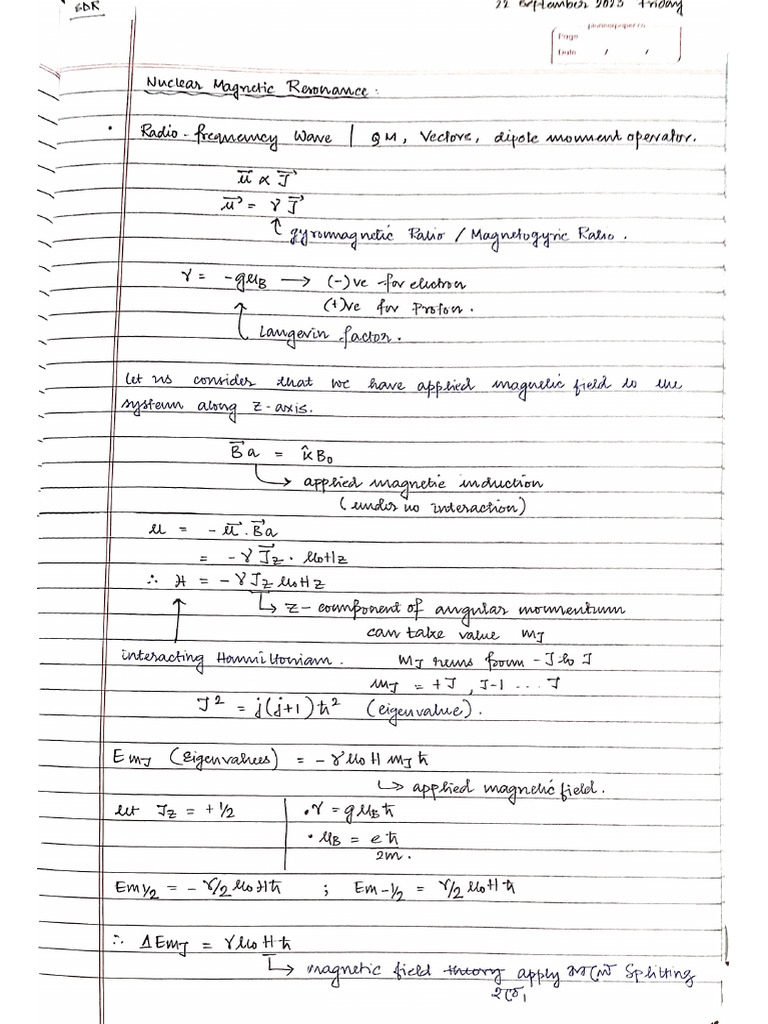 SDR
22 September 2023 Friday
plannerpaper.co
Page
Date / /
Nuclear Magnetic Resonance:
• Radio-frequency Wave | QM, Vectors, dipole moment operator.
μ⃗ ∝ J⃗
μ⃗ = γ J⃗
↑ gyromagnetic Ratio / Magnetogyric Ratio.
γ = -gμB → (-)ve for electron
(+)ve for Proton.
Langevin factor.
Let us consider that we have applied magnetic field to the
system along z-axis.
B⃗a = k̂B₀
↳ applied magnetic induction
(under no interaction)
u = -μ⃗.B⃗a
= -γ J⃗z . μ₀Hz
∴ H = -γ Jz μ₀Hz
↳ z-component of angular momentum
can take value mJ
interacting Hamiltonian. MJ runs from -J to J
mJ = +J, J-1 ... J
J² = j(j+1)ħ² (eigenvalue).
EmJ (Eigenvalues) = -γμ₀H mJ ħ
↳ applied magnetic field.
let Jz = +1/2 | • γ = gμBħ
• μB = eħ/2m.
Em1/2 = -γ/2 μ₀Hħ ; Em-1/2 = γ/2 μ₀Hħ
∴ ΔEmJ = γμ₀Hħ
↳ magnetic field theory apply করলে Splitting
হবে,